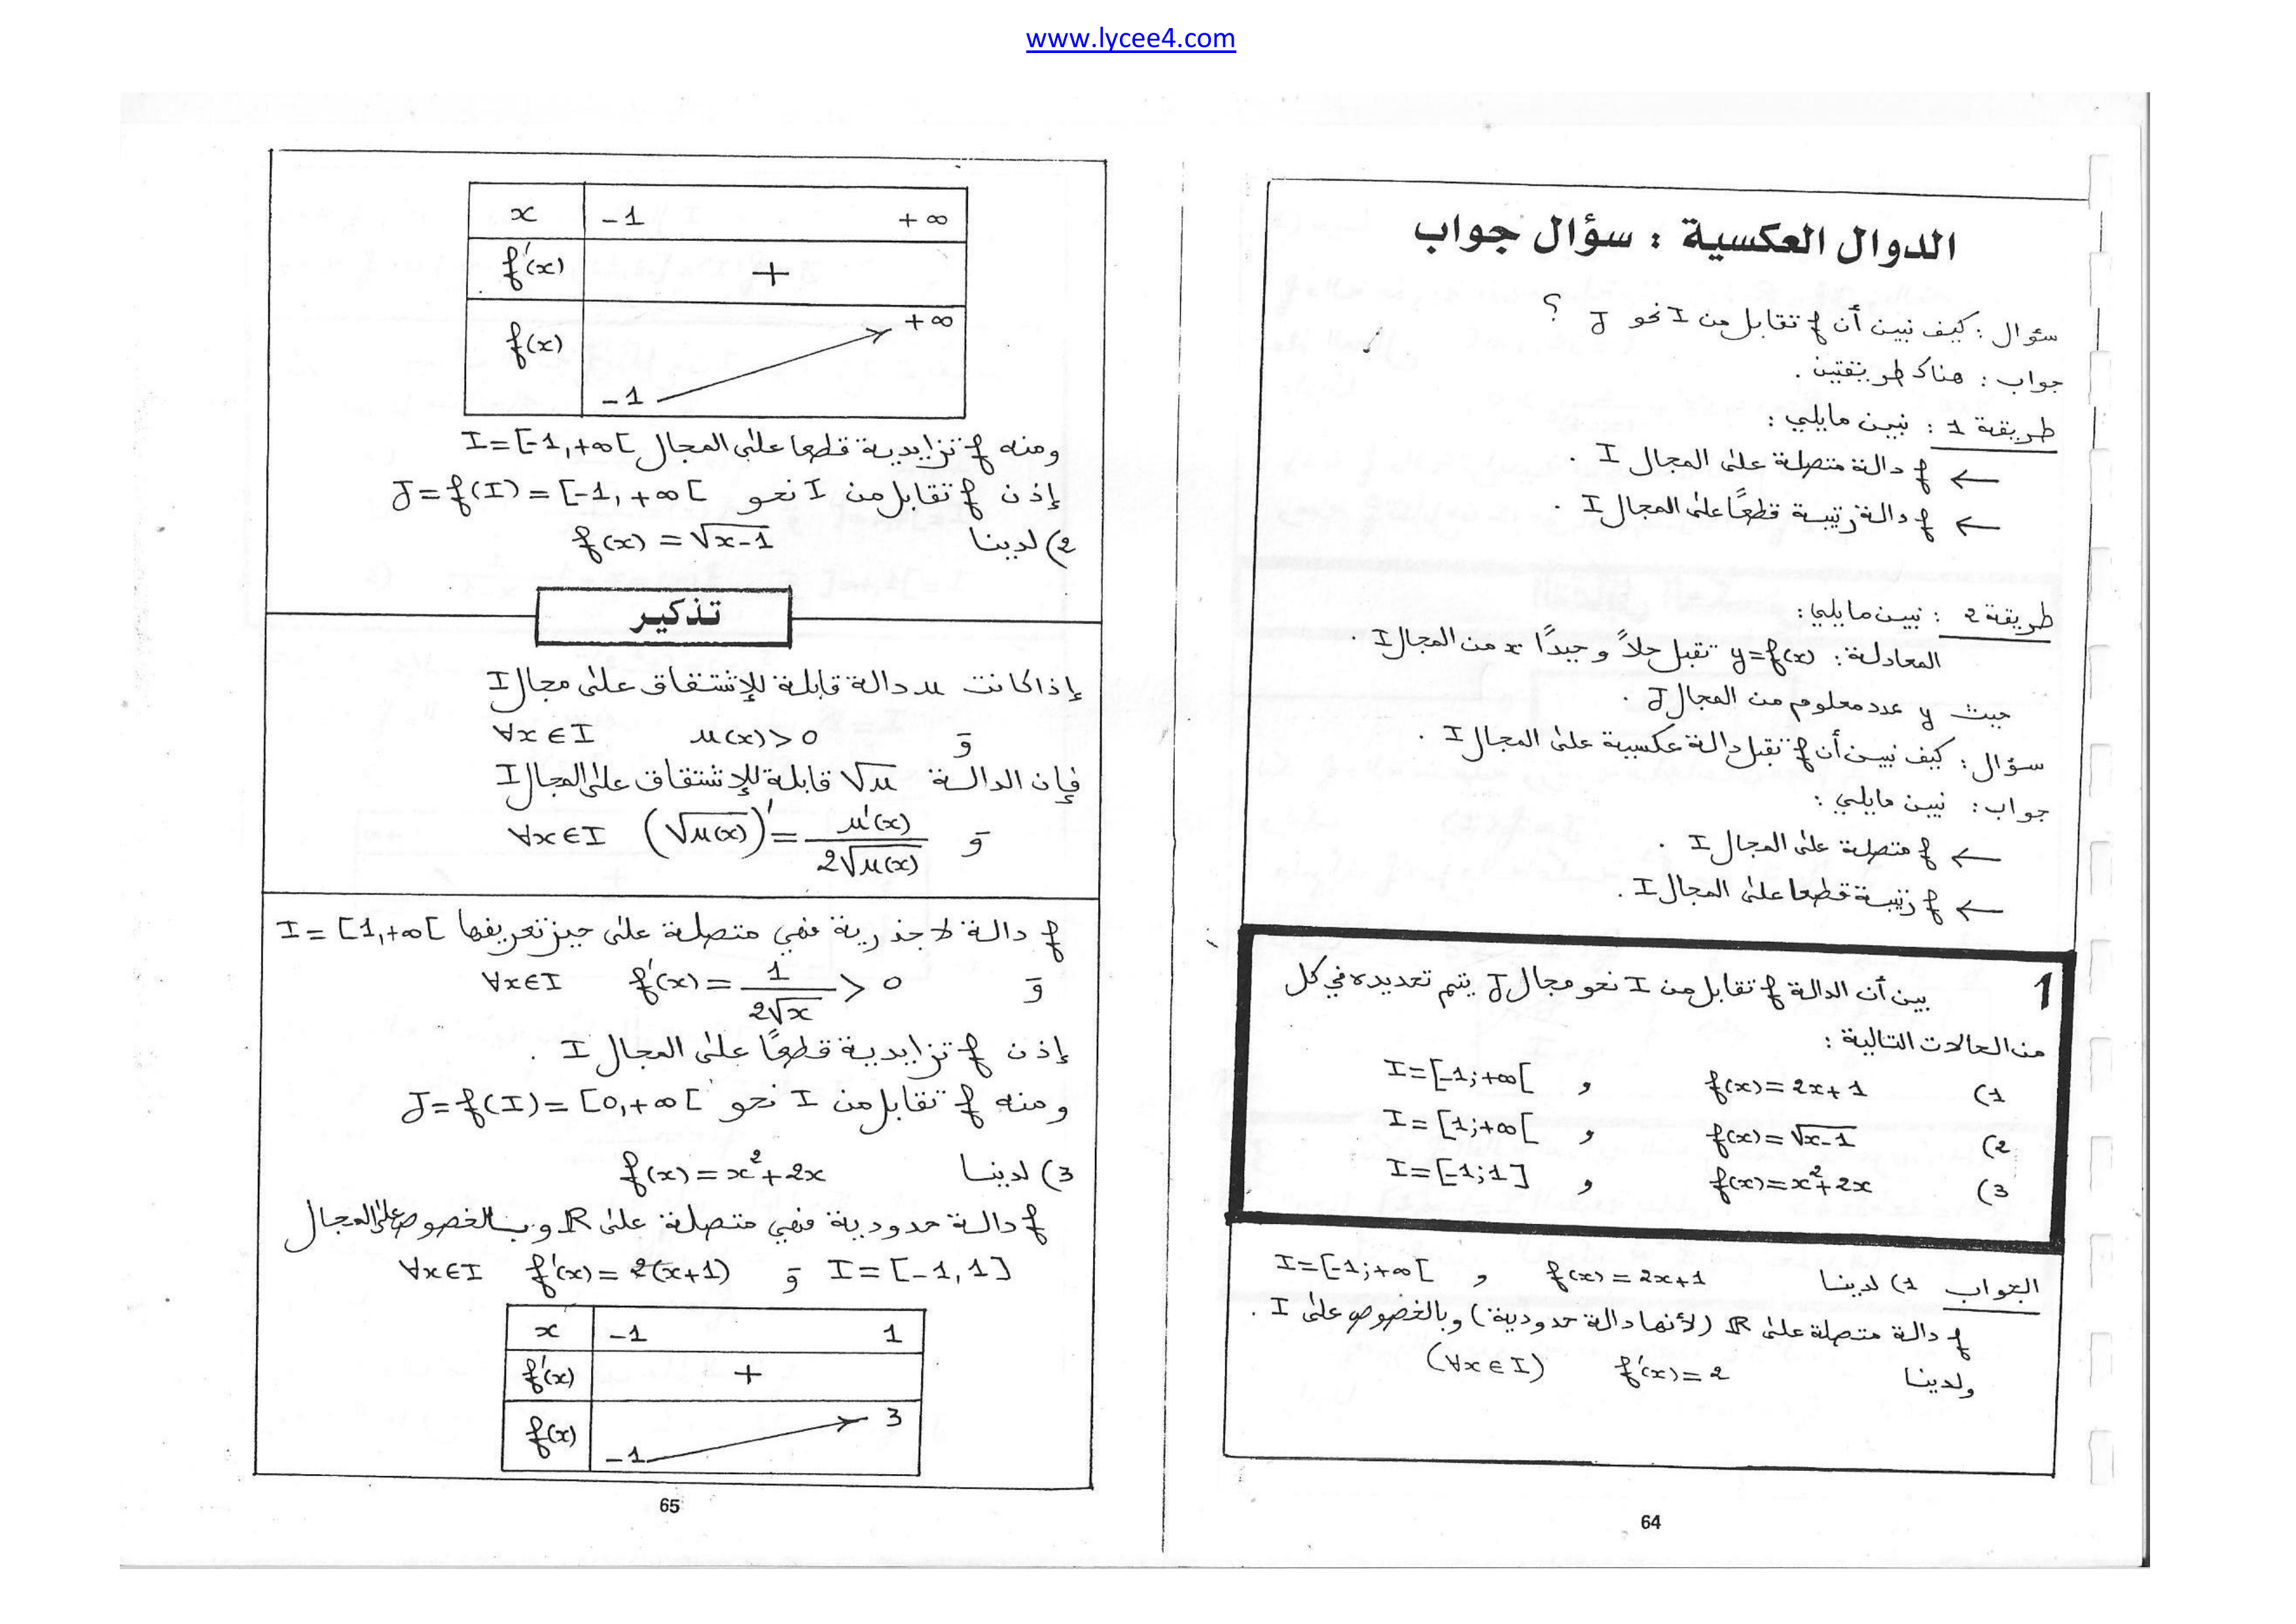 www.lycee4.com
الدوال العكسية : سؤال جواب
سؤال : كيف نبين أن f تقابل من I نحو J ؟
جواب : هناك طريقتين .
طريقة 1 : نبين مايلي :
← f دالة متصلة على المجال I .
← f دالة رتيبة قطعًا على المجال I .
طريقة 2 : نبين مايلي :
المعادلة : y=f(x) تقبل حلاً وحيدًا x من المجال I .
حيث y عدد معلوم من المجال J .
سؤال : كيف نبين أن f تقبل دالة عكسية على المجال I .
جواب : نبين مايلي :
← f متصلة على المجال I .
← f رتيبة قطعا على المجال I .
1 بين أن الدالة f تقابل من I نحو مجال J يتم تحديده في كل
من الحالات التالية :
1) f(x)=2x+1 , I=[-1;+∞[
2) f(x)=√(x-1) , I=[1;+∞[
3) f(x)=x²+2x , I=[-1;1]
الجواب 1) لدينا f(x)=2x+1 , I=[-1;+∞[
f دالة متصلة على ℝ (لأنها دالة حدودية) وبالخصوص على I .
ولدينا f'(x)=2 (∀x∈I)
64
x -1 +∞
f'(x) +
f(x) -1 +∞
ومنه f تزايدية قطعا على المجال I=[-1,+∞[
إذن f تقابل من I نحو J=f(I)=[-1,+∞[
2) لدينا f(x)=√(x-1)
تذكير
إذا كانت u دالة قابلة للإشتقاق على مجال I
و u(x)>0 ∀x∈I
فإن الدالة √u قابلة للإشتقاق على المجال I
و (√u(x))'=u'(x)/(2√u(x)) ∀x∈I
f دالة لا جذرية فهي متصلة على حيز تعريفها I=[1,+∞[
و f'(x)=1/(2√x) >0 ∀x∈I
إذن f تزايدية قطعًا على المجال I .
ومنه f تقابل من I نحو J=f(I)=[0,+∞[
3) لدينا f(x)=x²+2x
f دالة حدودية فهي متصلة على ℝ وبالخصوص على المجال
I=[-1,1] و f'(x)=2(x+1) ∀x∈I
x -1 1
f'(x) +
f(x) -1 3
65